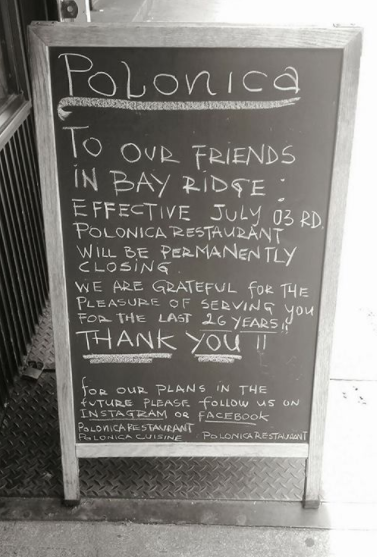 POLONICA
TO OUR FRIENDS
IN BAY RIDGE:
EFFECTIVE JULY 03 RD.
POLONICA RESTAURANT
WILL BE PERMANENTLY
CLOSING.
WE ARE GRATEFUL FOR THE
PLEASURE OF SERVING YOU
FOR THE LAST 26 YEARS!!
THANK YOU !!
FOR OUR PLANS IN THE
FUTURE PLEASE FOLLOW US ON
INSTAGRAM OR FACEBOOK
POLONICARESTAURANT
POLONICA CUISINE POLONICARESTAURANT